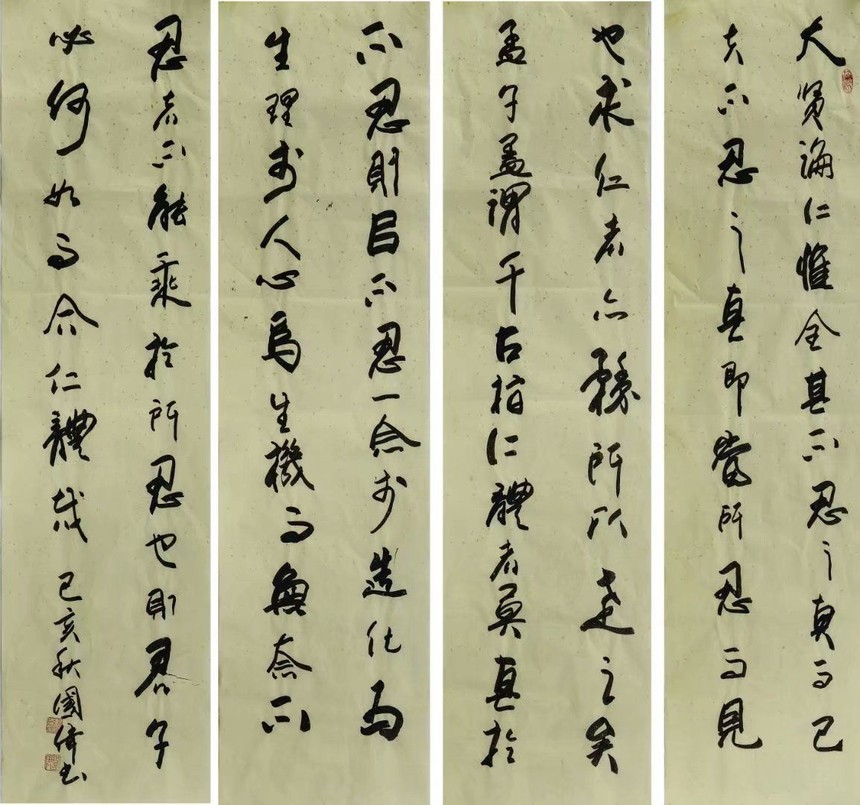 大賢論仁惟全其不忍之真而已
夫不忍之真即當所忍而見
也求仁者亦務所以達之矣
孟子蓋謂千古指仁體者莫真於
不忍則曰不忍一念於造化為
生理於人心為生機而無奈不
忍者不能乘於所忍也則君子
必何如而合仁體哉 己亥秋國偉书